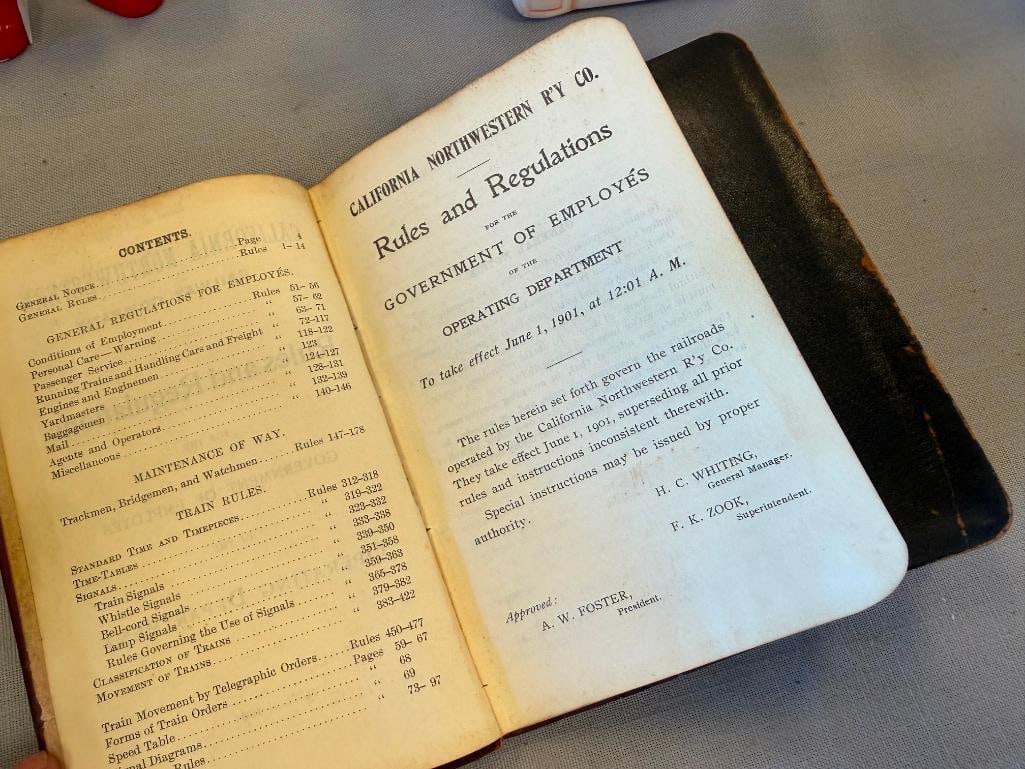 CONTENTS.
GENERAL NOTICE..........Page 4
GENERAL RULES..........Rules 1–14
GENERAL REGULATIONS FOR EMPLOYÉS.
Conditions of Employment..........Rules 51– 56
Personal Care—Warning..........“ 57– 62
Passenger Service..........“ 63– 71
Running Trains and Handling Cars and Freight “ 72–117
Engines and Enginemen..........“ 118–122
Yardmasters..........“ 123
Baggagemen..........“ 124–127
Mail..........“ 128–131
Agents and Operators..........“ 132–139
Miscellaneous..........“ 140–146
MAINTENANCE OF WAY.
Trackmen, Bridgemen, and Watchmen......Rules 147–178
TRAIN RULES.
STANDARD TIME AND TIMEPIECES..........Rules 312–318
TIME-TABLES..........“ 319–322
SIGNALS..........“ 323–332
Train Signals..........“ 333–338
Whistle Signals..........“ 339–350
Bell-cord Signals..........“ 351–358
Lamp Signals..........“ 359–363
Rules Governing the Use of Signals..........“ 365–378
CLASSIFICATION OF TRAINS..........“ 379–382
MOVEMENT OF TRAINS..........“ 383–422
Train Movement by Telegraphic Orders.....Rules 450–477
Forms of Train Orders..........Pages 59– 67
Speed Table..........“ 68
Diagrams..........“ 69
Rules..........“ 73– 97
CALIFORNIA NORTHWESTERN R'Y CO.
Rules and Regulations
FOR THE
GOVERNMENT OF EMPLOYÉS
OF THE
OPERATING DEPARTMENT
To take effect June 1, 1901, at 12:01 A. M.
The rules herein set forth govern the railroads
operated by the California Northwestern R'y Co.
They take effect June 1, 1901, superseding all prior
rules and instructions inconsistent therewith.
Special instructions may be issued by proper
authority.
H. C. WHITING,
General Manager.
F. K. ZOOK,
Superintendent.
Approved:
A. W. FOSTER,
President.